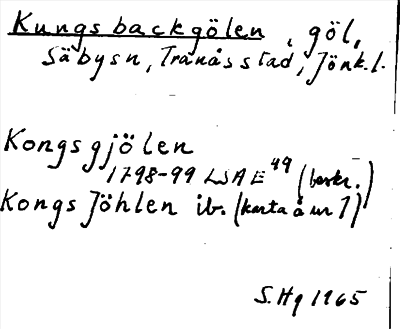 Kungsbackgölen, göl,
Säbysn, Tranås stad, Jönk.l.
Kongsgjölen
1798-99 LSA E49 (beskr.)
Kongs Jöhlen ib. (karta å nr 7)
S.Hg 1965